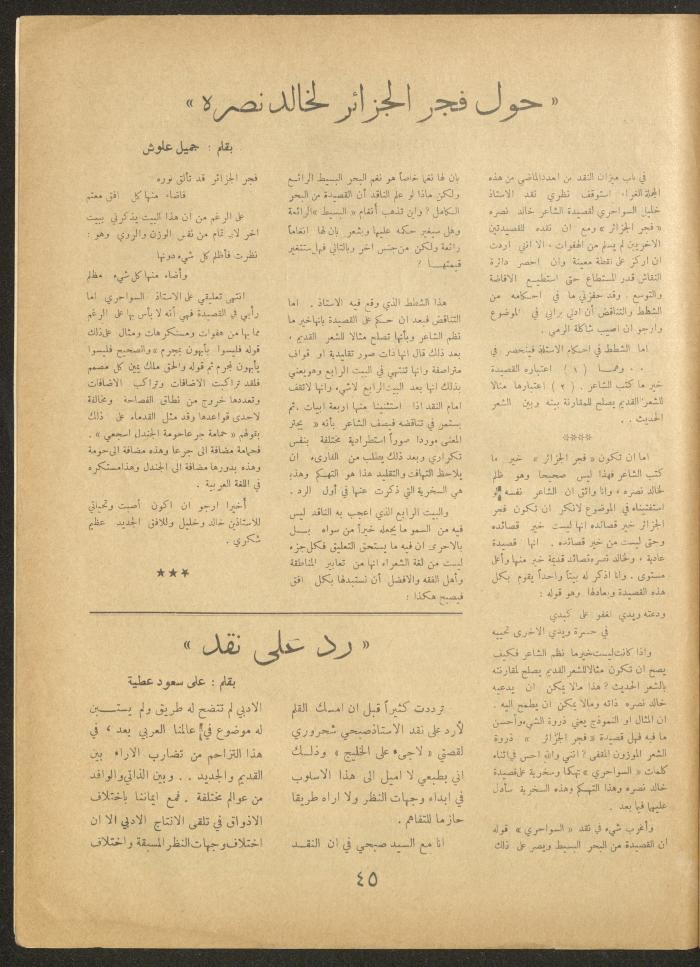 « حول فجر الجزائر لخالد نصره »
بقلم : جميل علوش
في باب ميزان النقد من العدد الماضي من هذه
المجلة الغراء استوقف نظري نقد الاستاذ
خليل السواحري لقصيدة الشاعر خالد نصره
« فجر الجزائر » ومع ان نقده للقصيدتين
الاخريين لم يسلم من الهفوات ، الا انني اردت
ان اركز على نقطة معينة وان احصر دائرة
النقاش قدر المستطاع حتى استطيع الافاضة
والتوسع . وقد حفزني ما في احكامه من
الشطط والتناقض أن ادلي برأيي في الموضوع
وارجو ان اصيب شاكلة الرمي .
اما الشطط في احكام الاستاذ فينحصر في
وهما ( ١ ) اعتباره القصيدة
خير ما كتب الشاعر . ( ٢ ) اعتبارها مثالا
للشعر القديم يصلح للمقارنة بينه وبين الشعر
الحديث ..
****
اما ان تكون « فجر الجزائر » خير ما
كتب الشاعر فهذا ليس صحيحا وهو ظلم
لخالد نصره ، وانا واثق ان الشاعر نفسه لو
استفتيناه في الموضوع لانكر ان تكون فجر
الجزائر خير قصائده انها ليست خير قصائده
وحتى ليست من خير قصائده . انها قصيدة
عادية ، ولخالد نصره قصائد قديمة خير منها وأعلى
مستوى . وانا اذكر له بيتا واحداً يقوم بكل
هذه القصيدة ويعادلها وهو قوله :
ودعته ويدي تغفو على كبدي
في حسرة ويدي الاخرى تحييه
واذا كانت ليست خير ما نظم الشاعر فكيف
يصح ان تكون مثالا للشعر القديم يصلح لمقارنته
بالشعر الحديث ؟ هذا مالا يمكن ان يدعيه
خالد نصره ذاته ومالا يمكن ان يطمح اليه .
ان المثال او النموذج يعني ذروة الشيء وأحسن
ما فيه فهل قصيدة « فجر الجزائر » ذروة
الشعر الموزون المقفى ؟ انني والله احس في اثناء
كلمات « السواحري » تهكما وسخرية على قصيدة
خالد نصره وهذا التهكم وهذه السخرية سأدل
عليهما فيما بعد .
وأغرب شيء في نقد « السواحري » قوله
ان القصيدة من البحر البسيط ويصر على ذلك
بان لها نغما خاصاً هو نغم البحر البسيط الرائع
ولكن ماذا لو علم الناقد أن القصيدة من البحر
الكامل ؟ واين تذهب أنغام « البسيط » الرائعة
وهل سيغير حكمه عليها ويشعر بان لها انغاماً
رائعة ولكن من جنس اخر وبالتالي فهل ستتغير
قيمتها ؟
هذا الشطط الذي وقع فيه الاستاذ . اما
التناقض فبعد ان حكم على القصيدة بانها خير ما
نظم الشاعر وبأنها تصلح مثالا للشعر القديم ،
بعد ذلك قال انها ذات صور تقليدية او قواف
متراصفة وانها تنتهي في البيت الرابع وهو يعني
بذلك انها بعد البيت الرابع لا شيء وانها لا تقف
امام النقد اذا استثنينا منها اربعة ابيات . ثم
يستمر في تناقضه فيصف الشاعر بأنه « يجتر
المعنى موردا صوراً استطرادية مختلفة بنفس
تكراري وبعد ذلك يطلب من القارىء ان
يلاحظ التهافت والتقليد هذا هو التهكم وهذه
هي السخرية التي ذكرت عنها في أول الرد .
والبيت الرابع الذي اعجب به الناقد ليس
فيه من السمو ما يجعله خيراً من سواه بل
بالاحرى ان فيه ما يستحق التعليق فكل جزء
ليست من لغة الشعراء انها من تعابير المناطقة
وأهل الفقه والافضل أن نستبدلها بكل افق
فيصبح هكذا :
فجر الجزائر قد تألق نوره
فاضاء منها كل افق معتم
على الرغم من ان هذا البيت يذكرني ببيت
اخر لابي تمام من نفس الوزن والروي وهو :
نظرت فأظلم كل شيء دونها
وأضاء منها كل شيء مظلم
انتهى تعليقي على الاستاذ السواحري اما
رأيي في القصيدة فهي أنه لا بأس بها على الرغم
مما بها من هفوات ومستكرهات ومثال على ذلك
قوله فليسوا بأبهون بمجرم » والصحيح فليسوا
يأبهون لمجرم ثم قوله والحق ملك يمين كل مصمم
فلقد تراكبت الاضافات وتراكب الاضافات
وتعددها خروج من نطاق الفصاحة ومخالفة
لاحدى قواعدها وقد مثل القدماء على ذلك
بقولهم « حمامة جرعا حومة الجندل اسجعي » .
فحمامة مضافة الى جرعا وهذه مضافة الى حومة
وهذه بدورها مضافة الى الجندل وهذا مستكره
في اللغة العربية .
أخيرا ارجو ان اكون أصبت وتحياتي
للاستاذين خالد وخليل وللافق الجديد عظيم
شكري .
***
« رد على نقد »
بقلم : على سعود عطية
ترددت كثيراً قبل ان امسك القلم
لأرد على نقد الاستاذ صبحي شحروري
لقصتي « لاجىء على الخليج » وذلك
اني بطبعي لا اميل الى هذا الاسلوب
في ابداء وجهات النظر ولا اراه طريقا
حازما للتفاهم .
انا مع السيد صبحي في ان النقد
الادبي لم تتضح له طريق ولم يستبن
له موضوع في عالمنا العربي بعد ، في
هذا التزاحم من تضارب الاراء بين
القديم والجديد .. وبين الذاتي والوافد
من عوالم مختلفة . فمع ايماننا باختلاف
الاذواق في تلقى الانتاج الادبي الا ان
اختلاف وجهات النظر المسبقة واختلاف
٤٥